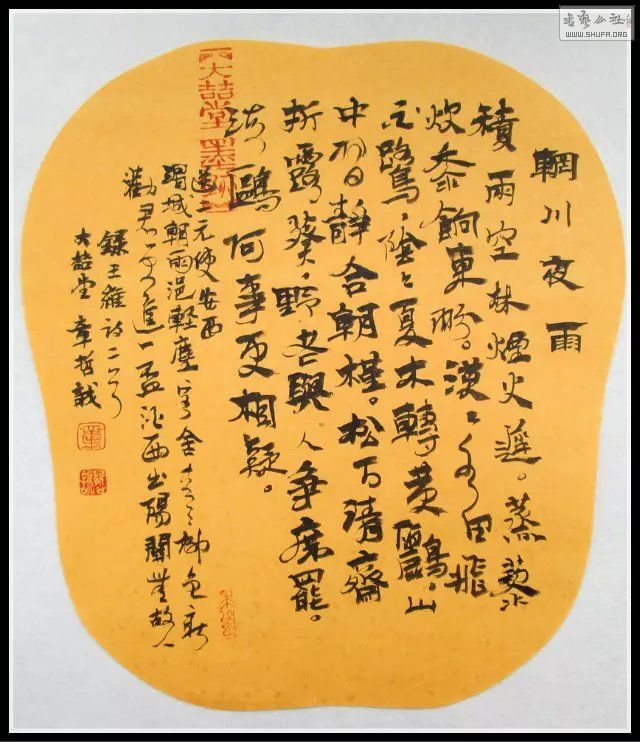 書藝公社
WWW.SHUFA.ORG
輞川夜雨
積雨空林煙火遲。蒸藜
炊黍餉東菑。漠〻水田飛
白鷺,陰〻夏木轉黃鸝。山
中習靜合朝槿。松下清齋
折露葵,野老與人爭席罷。
海鷗何事更相疑。
送二元使安西
渭城朝雨浥輕塵客舍青〻柳色新
勸君更進一盃酒西出陽關無故人
錄王維詩二首
大喆堂 章哲
大喆堂